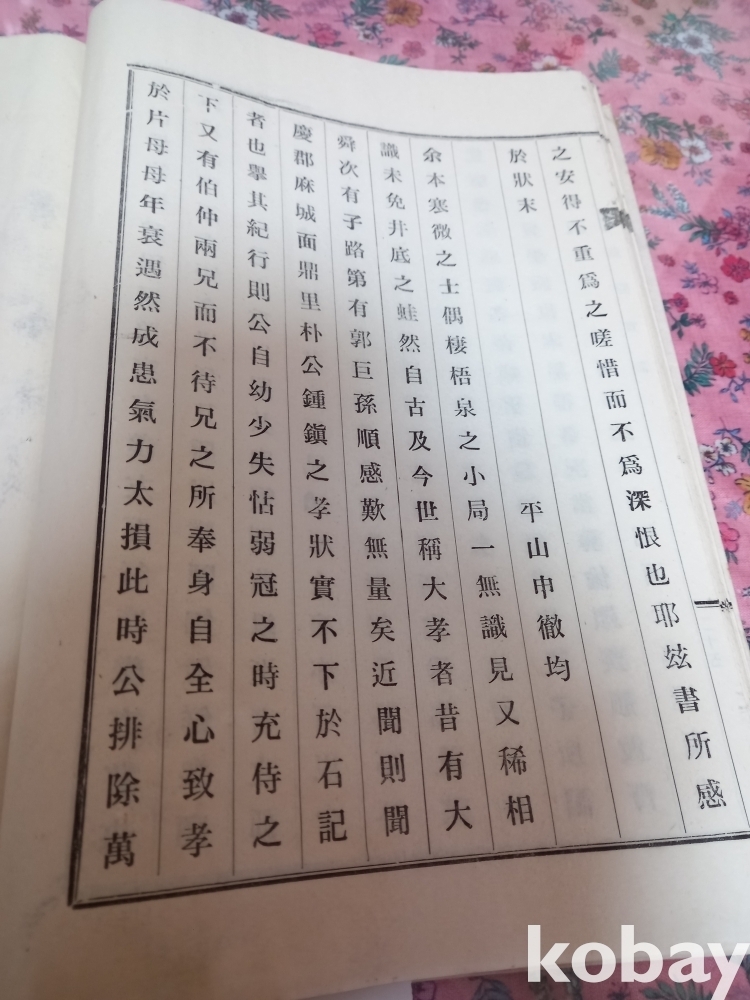 之安得不重爲之嗟惜而不爲深恨也耶玆書所感
於狀末
平山申徹均
余本寒微之士偶棲梧泉之小局一無識見又稀相
識未免井底之蛙然自古及今世稱大孝者昔有大
舜次有子路第有郭巨孫順感歎無量矣近聞則聞
慶郡麻城面鼎里朴公鍾鎭之孝狀實不下於石記
者也擧其紀行則公自幼少失怙弱冠之時充侍之
下又有伯仲兩兄而不待兄之所奉身自全心致孝
於片母母年衰遇然成患氣力太損此時公排除萬
kobay